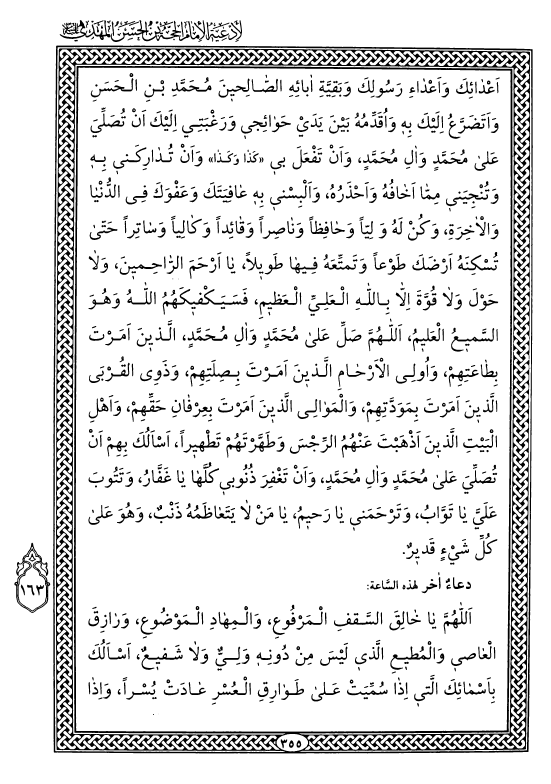 لأدعية الإمام الحجة بن الحسن المهدي
اَعْدٰائِكَ وَاَعْدٰاءِ رَسُولِكَ وَبَقِيَّةِ اٰبائِهِ الصّٰالِحينَ مُحَمَّدِ بْنِ الْحَسَنِ
وَاَتَضَرَّعُ اِلَيْكَ بِهِ وَاُقَدِّمُهُ بَيْنَ يَدَيْ حَوٰائِجي وَرَغْبَتي اِلَيْكَ اَنْ تُصَلِّيَ
عَلىٰ مُحَمَّدٍ وَاٰلِ مُحَمَّدٍ، وَاَنْ تَفْعَلَ بي «كَذٰا وَكَذٰا» وَاَنْ تُدٰارِكَني بِهِ
وَتُنْجِيَني مِمّٰا اَخٰافُهُ وَاَحْذَرُهُ، وَاَلْبِسْني بِهِ عٰافِيَتَكَ وَعَفْوَكَ فِي الدُّنْيٰا
وَالْاٰخِرَةِ، وَكُنْ لَهُ وَلِيّاً وَحٰافِظاً وَنٰاصِراً وَقٰائِداً وَكٰالِياً وَسٰاتِراً حَتّىٰ
تُسْكِنَهُ اَرْضَكَ طَوْعاً وَتَمَتِّعَهُ فيهٰا طَويلاً، يٰا اَرْحَمَ الرّٰاحِمينَ، وَلٰا
حَوْلَ وَلٰا قُوَّةَ اِلّٰا بِاللّٰهِ الْعَلِيِّ الْعَظيمِ، فَسَيَكْفيكَهُمُ اللّٰهُ وَهُوَ
السَّميعُ الْعَليمُ، اَللّٰهُمَّ صَلِّ عَلىٰ مُحَمَّدٍ وَاٰلِ مُحَمَّدٍ، الَّذينَ اَمَرْتَ
بِطٰاعَتِهِمْ، وَاُولِي الْاَرْحٰامِ الَّذينَ اَمَرْتَ بِصِلَتِهِمْ، وَذَوِي الْقُرْبىٰ
الَّذينَ اَمَرْتَ بِمَوَدَّتِهِمْ، وَالْمَوٰالِي الَّذينَ اَمَرْتَ بِعِرْفٰانِ حَقِّهِمْ، وَاَهْلِ
الْبَيْتِ الَّذينَ اَذْهَبْتَ عَنْهُمُ الرِّجْسَ وَطَهَّرْتَهُمْ تَطْهيراً، اَسْاَلُكَ بِهِمْ اَنْ
تُصَلِّيَ عَلىٰ مُحَمَّدٍ وَاٰلِ مُحَمَّدٍ، وَاَنْ تَغْفِرَ ذُنُوبي كُلَّهٰا يٰا غَفّٰارُ، وَتَتُوبَ
عَلَيَّ يٰا تَوّٰابُ، وَتَرْحَمَني يٰا رَحيمُ، يٰا مَنْ لٰا يَتَعٰاظَمُهُ ذَنْبٌ، وَهُوَ عَلىٰ
كُلِّ شَيْءٍ قَديرٌ.
١٦٣
دعاءٌ اٰخر لهذه السّاعة:
اَللّٰهُمَّ يٰا خٰالِقَ السَّقْفِ الْمَرْفُوعِ، وَالْمِهٰادِ الْمَوْضُوعِ، وَرٰازِقَ
الْعٰاصي وَالْمُطيعِ الَّذي لَيْسَ مِنْ دُونِهِ وَلِيٌّ وَلٰا شَفيعٌ، اَسْاَلُكَ
بِاَسْمٰائِكَ الَّتي اِذٰا سُمِّيَتْ عَلىٰ طَوٰارِقِ الْعُسْرِ عٰادَتْ يُسْراً، وَاِذٰا
٣٥٥